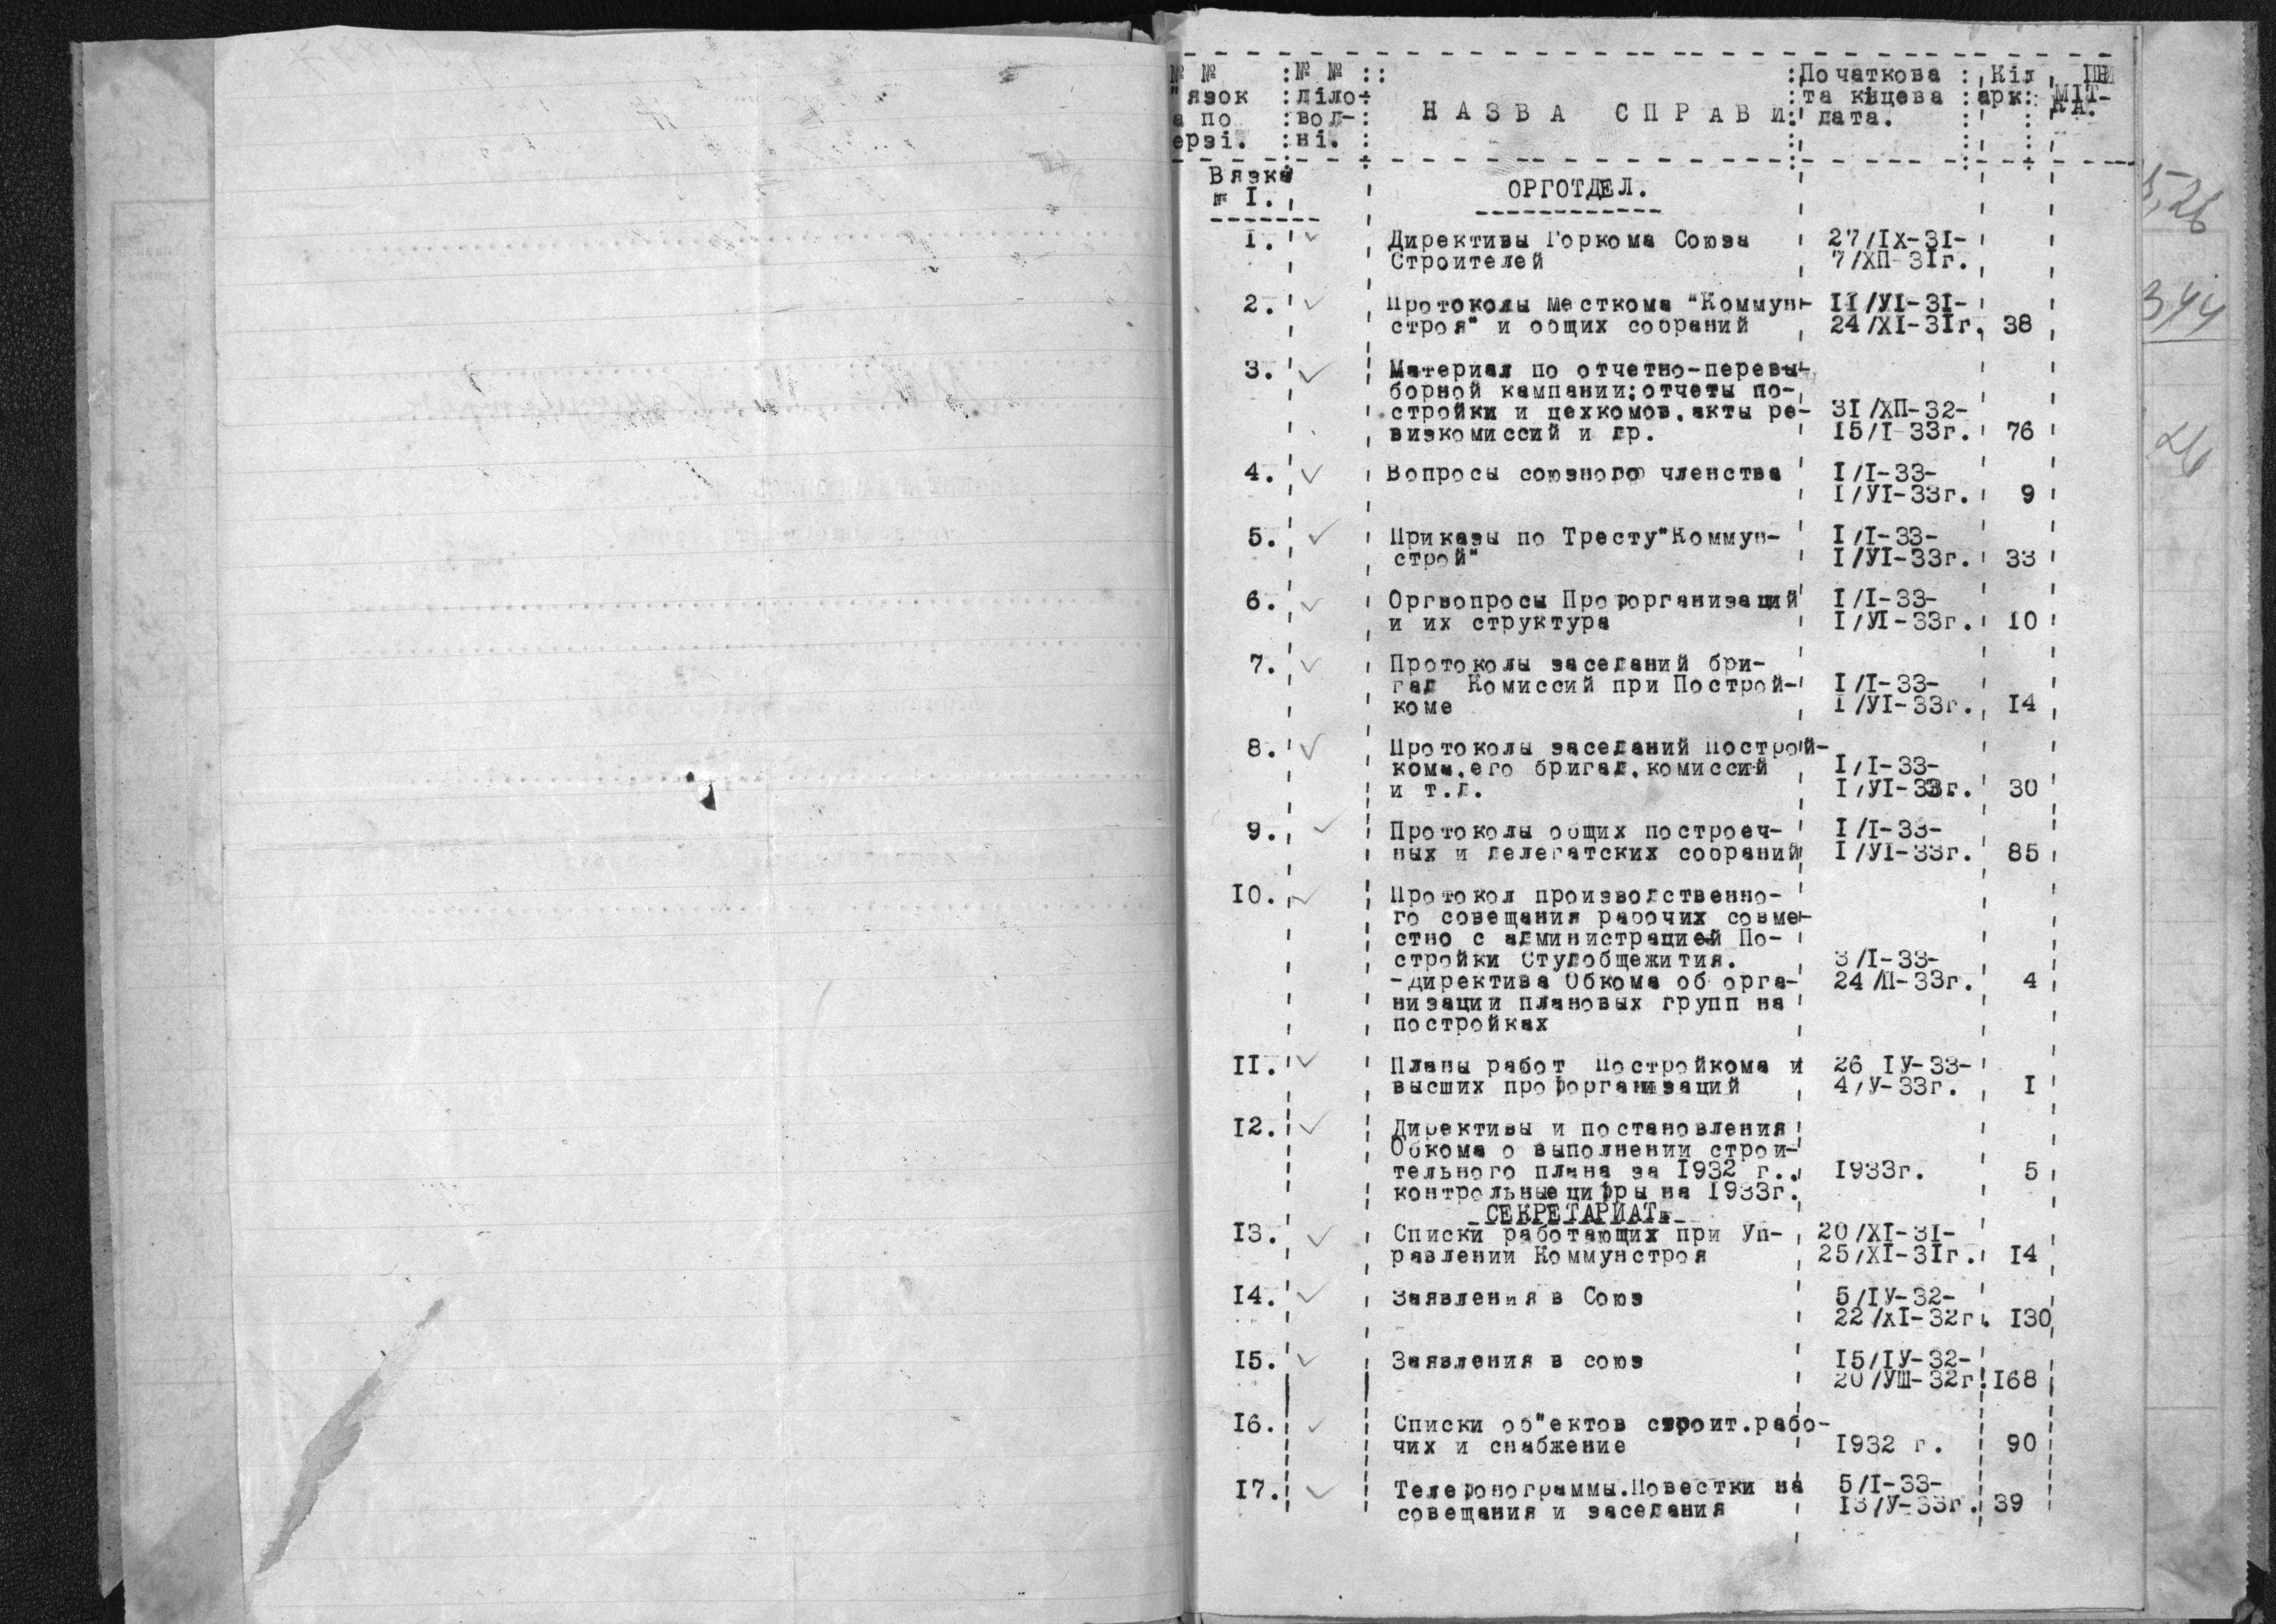 № № : № № : : Початкова : Кіл ПРИ
"язок : діло- : НАЗВА СПРАВИ : та кінцева : арк: МІТ-
а по : вод- : дата. КА.
ерзі. : ні. :
Вязка
№ I.
ОРГОТДЕЛ.
I. Директивы Горкома Союза 27/IX-3I-
Строителей 7/ХП-3Iг.
2. Протоколы месткома "Коммун- II/УI-3I-
строя" и общих собраний 24/XI-3Iг. 38
3. Материал по отчетно-перевы-
борной кампании:отчеты по-
стройки и цехкомов,акты ре- 3I/ХП-32-
визкомиссий и др. I5/I-33г. 76
4. Вопросы союзного членства I/I-33-
I/УI-33г. 9
5. Приказы по Тресту"Коммун- I/I-33-
строй" I/УI-33г. 33
6. Оргвопросы Профорганизаций I/I-33-
и их структура I/УI-33г. I0
7. Протоколы заседаний бри-
гад Комиссий при Построй- I/I-33-
коме I/УI-33г. I4
8. Протоколы заседаний Построй-
кома,его бригад,комиссий I/I-33-
и т.д. I/УI-33г. 30
9. Протоколы общих построеч- I/I-33-
ных и делегатских собраний I/УI-33г. 85
I0. Протокол производственно-
го совещания рабочих совме-
стно с администрацией По-
стройки Студобщежития. 3/I-33-
-Директива Обкома об орга- 24/П-33г. 4
низации плановых групп на
постройках
II. Планы работ Постройкома и 26 IУ-33-
высших профорганизаций 4/У-33г. I
I2. Директивы и постановления
Обкома о выполнении строи-
тельного плана за I932 г., I933г. 5
контрольные цифры на I933г.
СЕКРЕТАРИАТ.
I3. Списки работающих при Уп- 20/XI-3I-
равлении Коммунстроя 25/XI-3Iг. I4
I4. Заявления в Союз 5/IУ-32-
22/XI-32г. I30
I5. Заявления в союз I5/IУ-32-
20/УШ-32г. I68
I6. Списки об"ектов строит.рабо-
чих и снабжение I932 г. 90
I7. Телефонограммы.Повестки на 5/I-33-
совещания и заседания I3/У-33г. 39
5,26
344
26